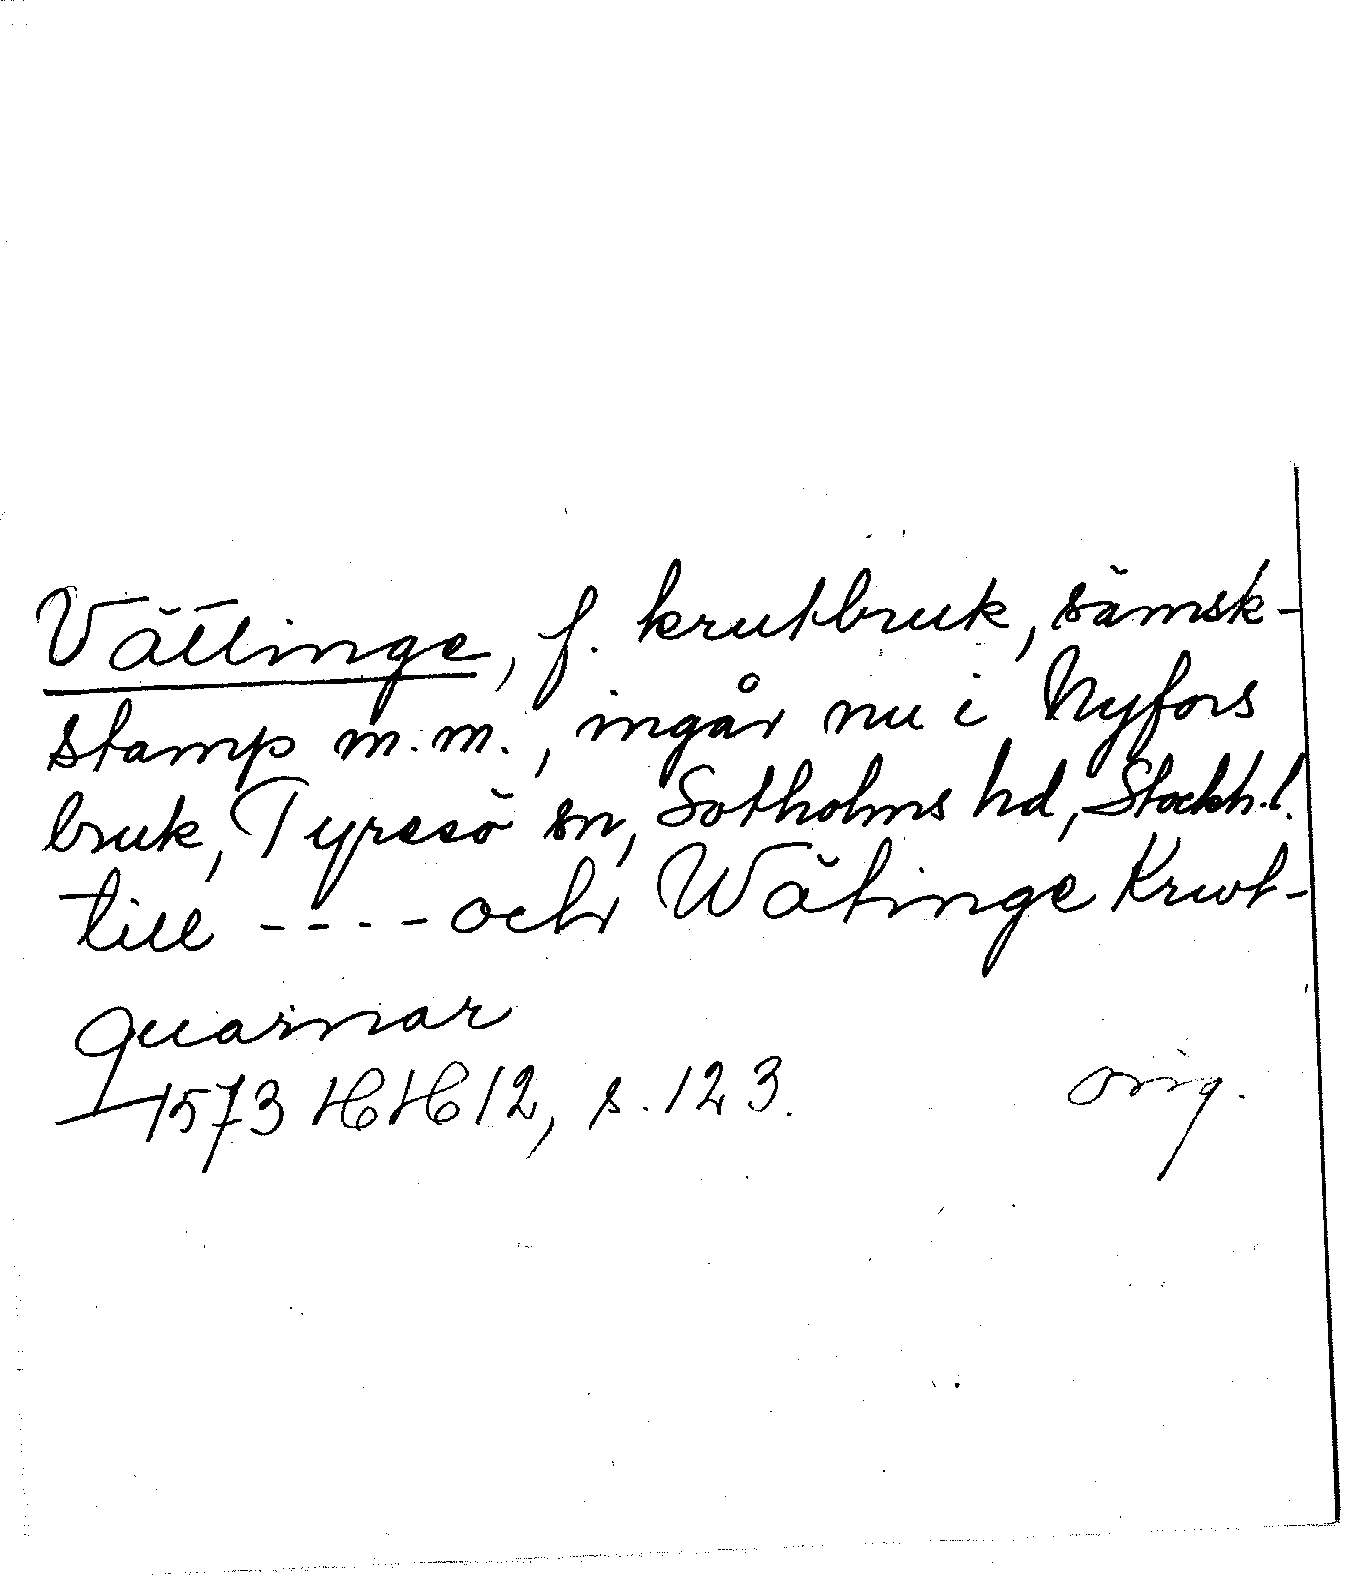 Vättinge, f. krutbruk, sämsk-
stamp m.m., ingår nu i Nyfors
bruk, Tyresö sn, Sotholms hd, Stockh.l.
till ---- och Wätinge Krwt-
quarnar
1573 HH 12, s. 123.
orig.